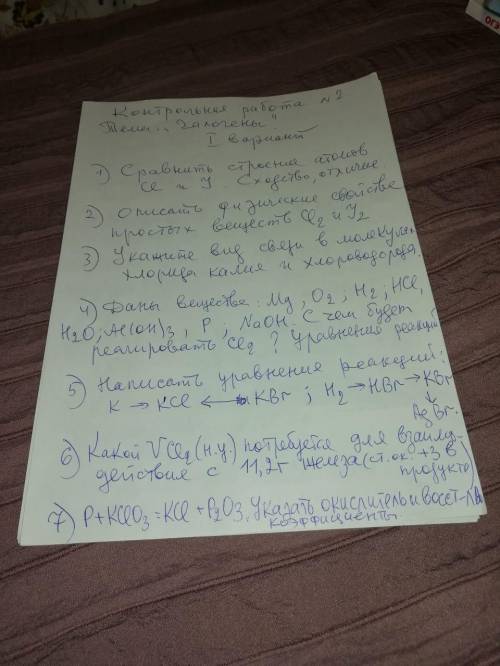 Контрольная работа №2
Тема: "Галогены".
I вариант
1) Сравнить строение атомов
Cl и J. Сходство, отличие
2) Описать физические свойства
простых веществ Cl2 и J2
3) Укажите вид связи в молекулах
хлорида калия и хлороводорода.
4) Даны вещества: Mg, O2; H2; HCl,
H2O; Al(OH)3, P; NaOH. С чем будет
реагировать Cl2? Уравнения реакций
5) Написать уравнения реакций:
K → KCl ⟷ KBr; H2 → HBr → KBr
↓
AgBr.
6) Какой VCl2 (н.у.) потребуется для взаимо-
действия с 11,2г железа (ст.ок. +3 в
продукте)
7) P+KClO3=KCl+P2O3. Указать окислитель и восст-ль
коэффициенты.